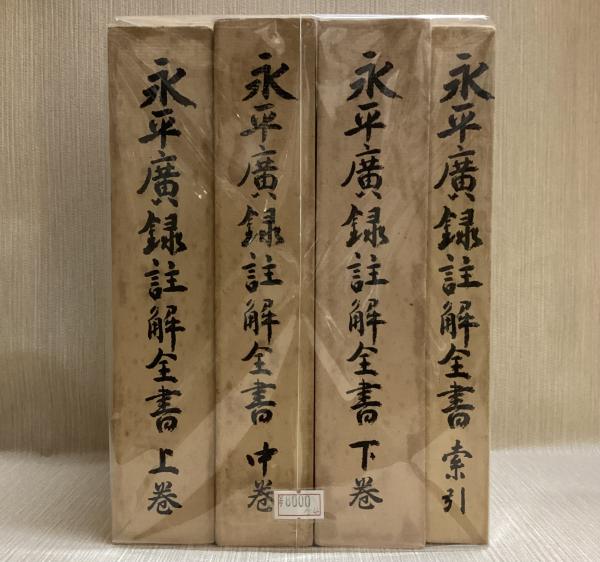 永平廣録註解全書 上巻
永平廣録註解全書 中巻
永平廣録註解全書 下巻
永平廣録註解全書 索引
¥8000